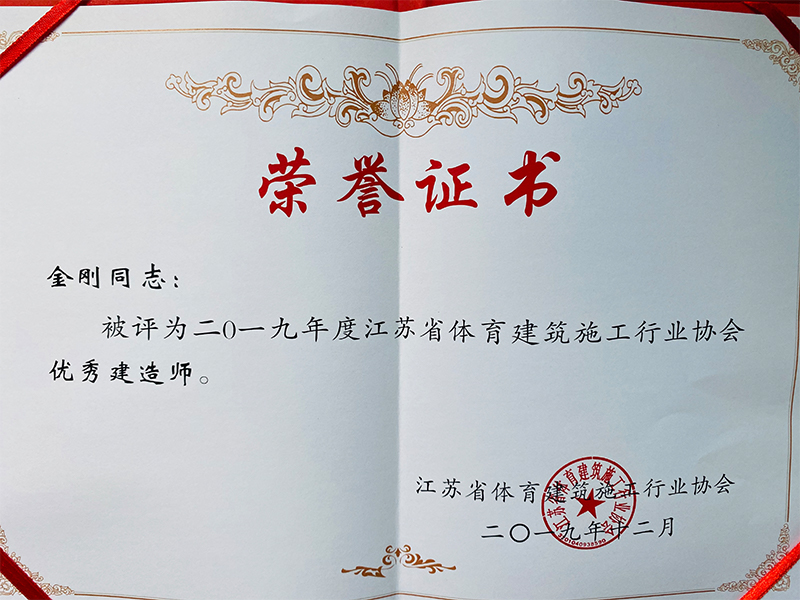 荣誉证书
金刚同志：
被评为二〇一九年度江苏省体育建筑施工行业协会
优秀建造师。
江苏省体育建筑施工行业协会
二〇一九年十二月
江苏省体育建筑施工行业协会